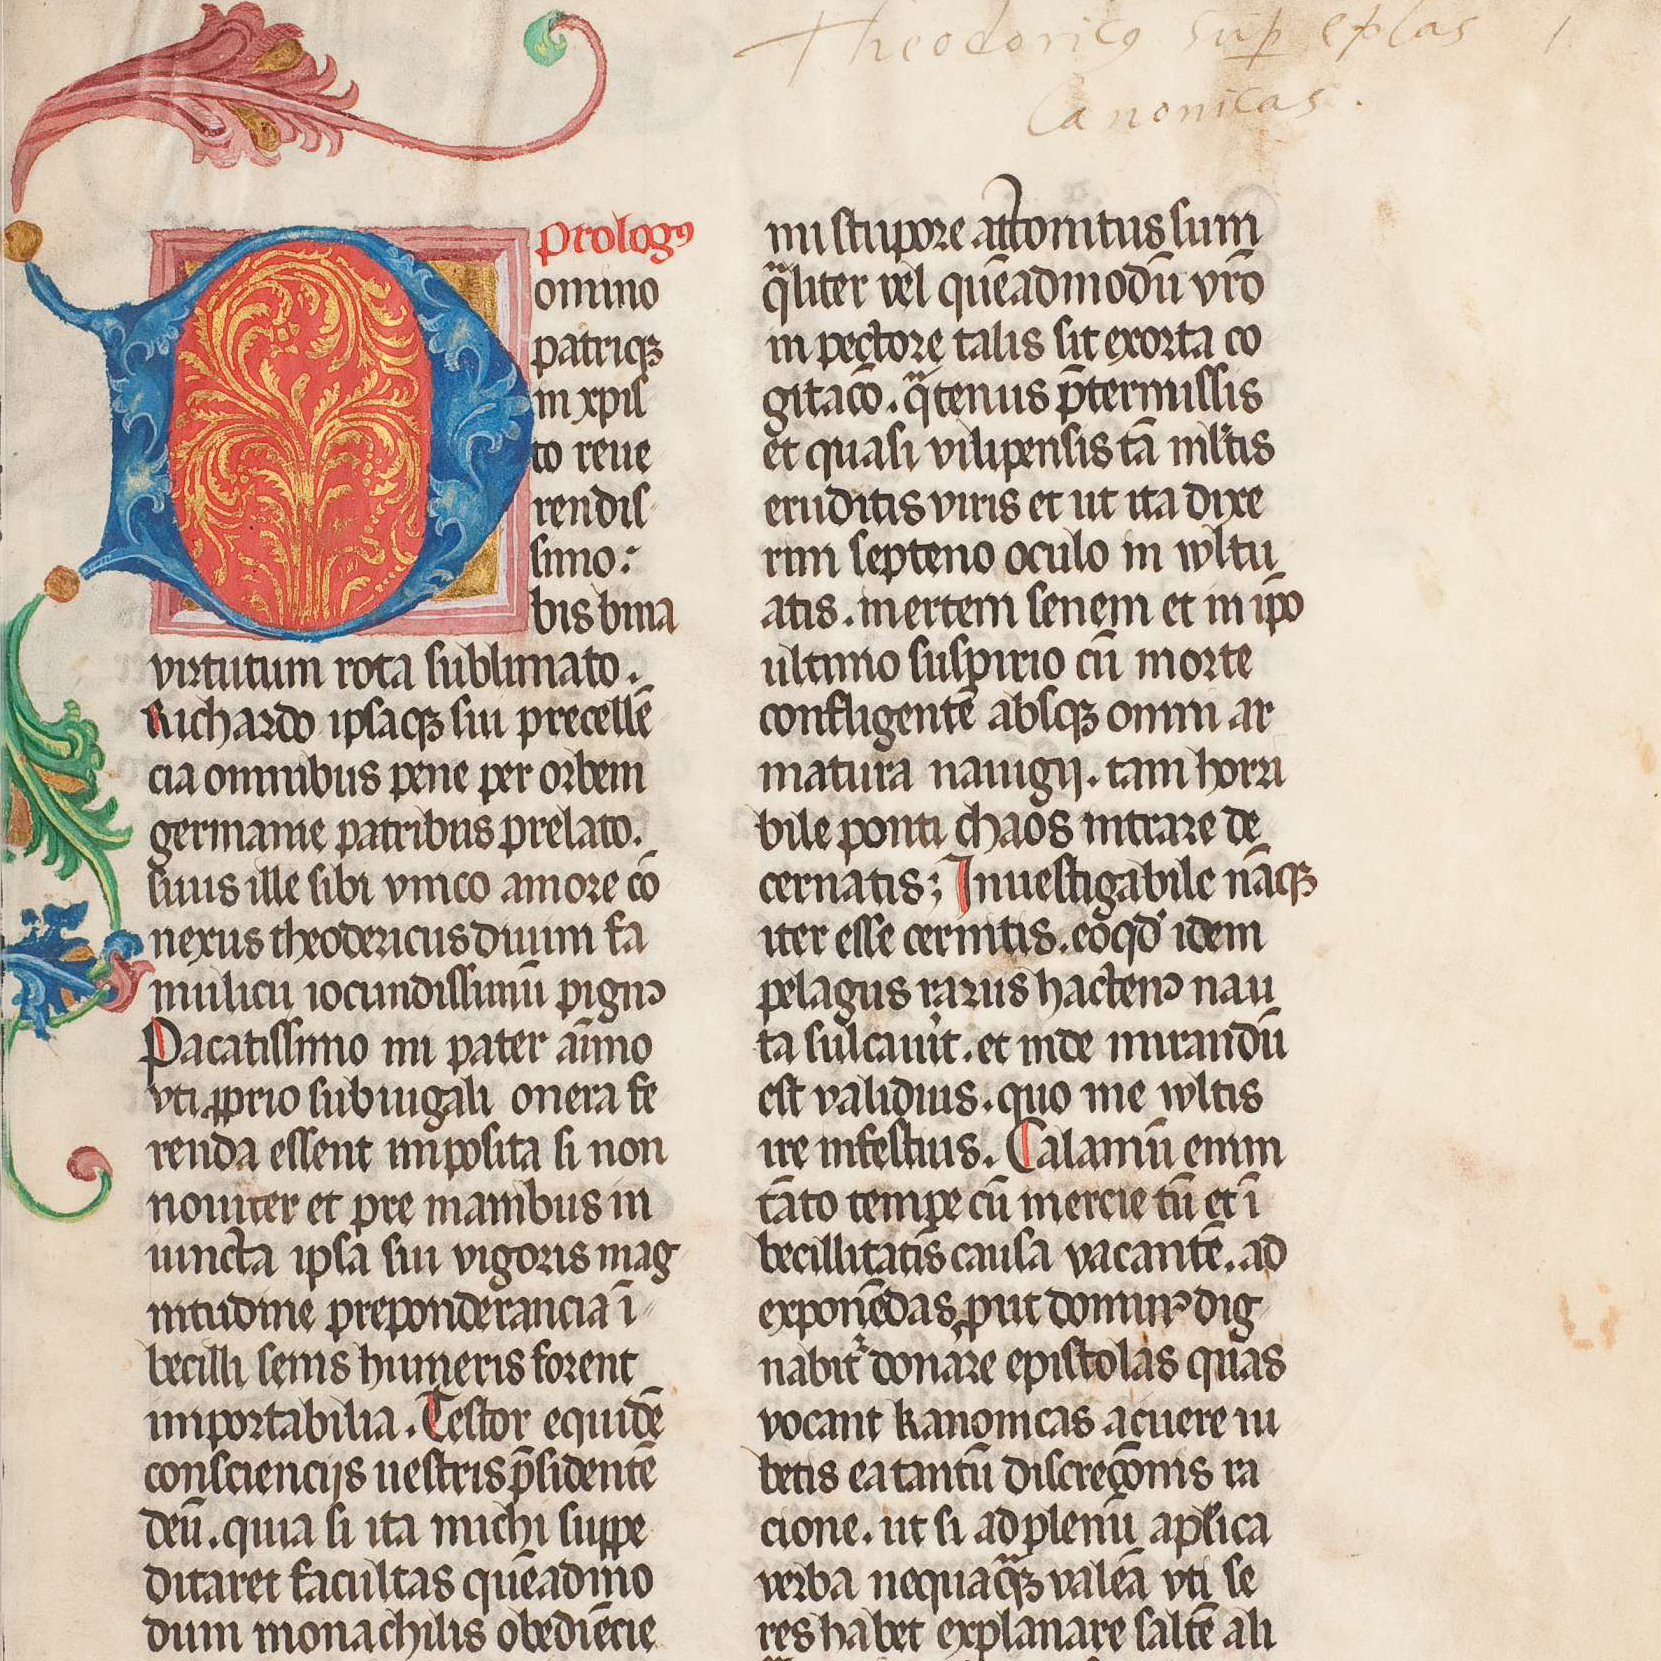 Theodoricꝯ sup eplas 1
Canonicas.
Prologꝯ
omino
patriqꝫ
in xpis
to reue
rendis
simo:
bis bina
virtutum rota sublimato.
Richardo ipsaqꝫ sui precellē
cia omnibus pene per orbem
germanie patribus prelato.
suus ille sibi vnico amore cō
nexus theodericus duum fa
mulicii iocundissimū pignꝯ
Pacatissimo mi pater aīmo
vti ꝓprio subiugali onera fe
renda essent imposita si non
nouiter et pre manibus in
iuncta ipsa sui vigoris mag
nitudine preponderancia ī
becilli senis humeris forent
importabilia. Testor equidē
consciencijs uestris p̄sidentē
deū. quia si ita michi suppe
ditaret facultas quēadmo
dum monachilis obediēcie
mi stupore attonitus sum
qͣliter vel quēadmodū vr̄o
in pectore talis sit exorta co
gitacō. qͣtenus p̄termissis
et quasi vilipensis tā ml̓tis
eruditis viris et ut ita dixe
rim septeno oculo in wltu
atis. inertem senem et in ip̄o
ultimo suspirio cū morte
confligentē absqꝫ omni ar
matura nauigij. tam horri
bile ponti chaos intrare de
cernatis; Inuestigabile nāqꝫ
iter esse cernitis. eoqd̓ idem
pelagus rarus hactenꝯ nau
ta sulcauit. et inde mirandū
est validius. quo me wltis
ire infestius. Calamū enim
tāto tempe cū inercie tū et ī
becillitatis causa vacantē. ad
exponēdas ꝓut dominꝯ dig
nabit᷑ donare epistolas quas
vocant kanonicas acuere iu
betis ea tantū discrecōnis ra
cione. ut si ad plenū apl̓ica
verba nequaqͣꝫ valeā vti se
res habet explanare saltē ali